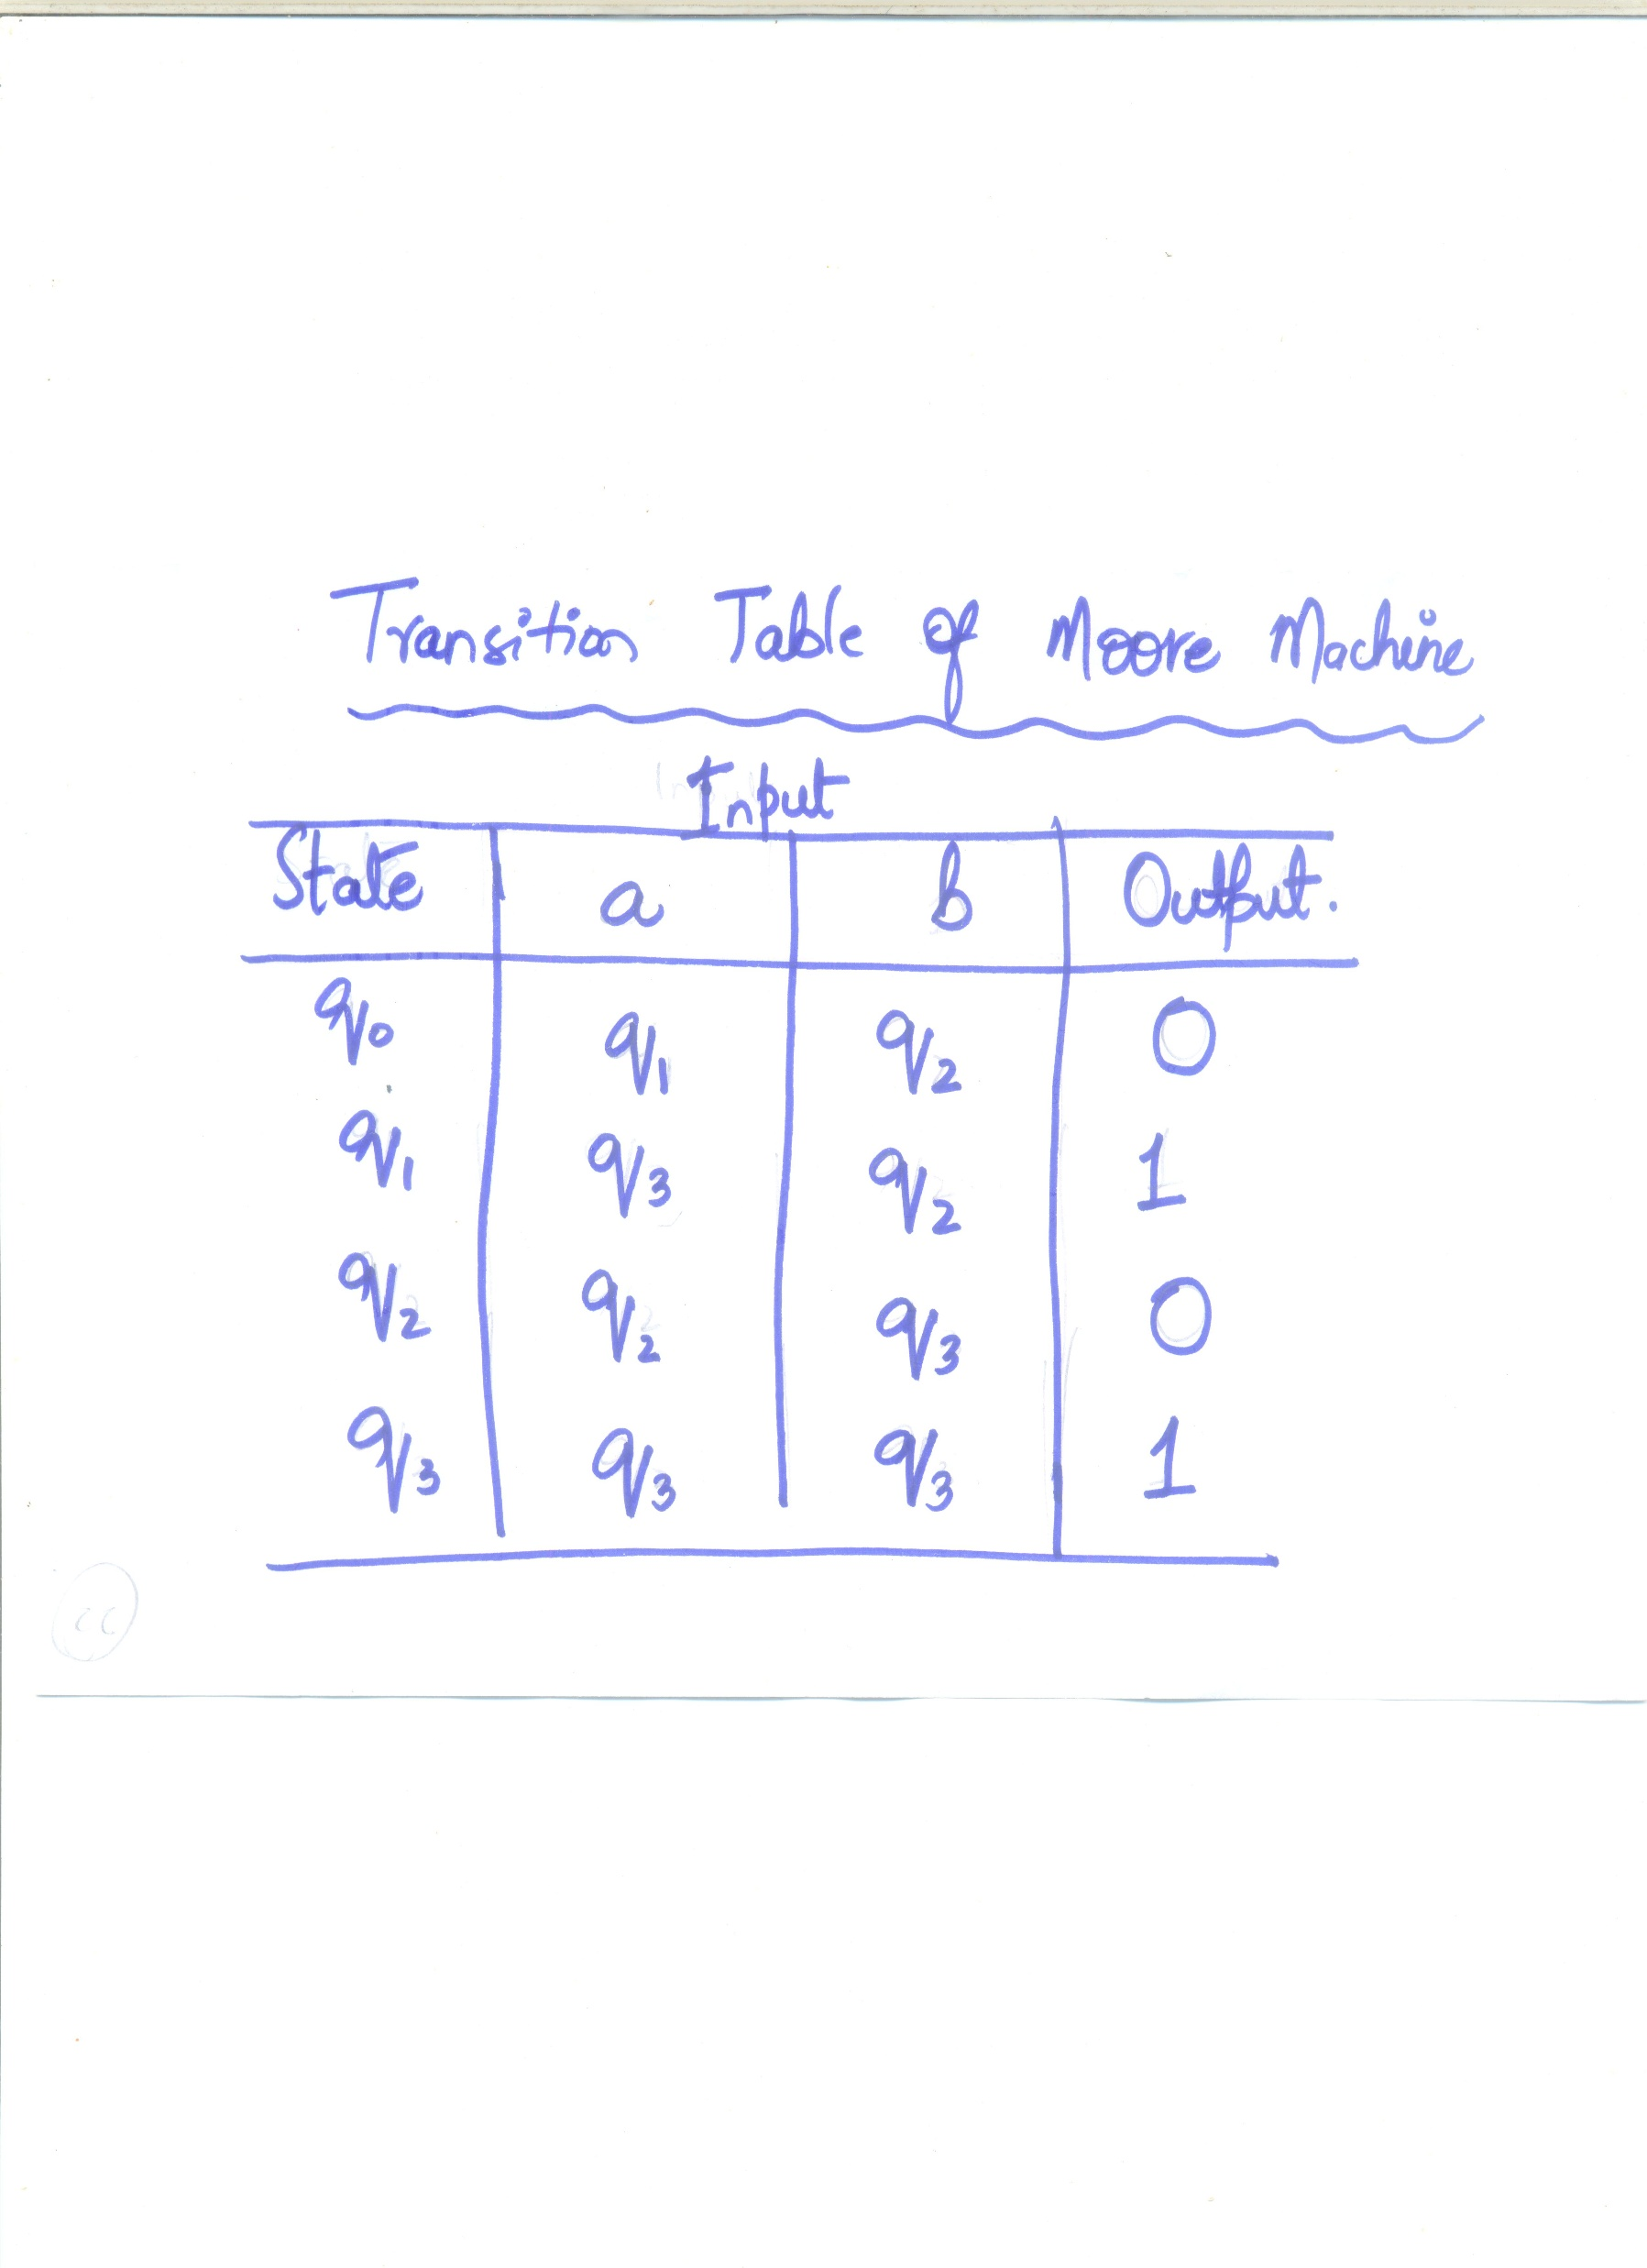 Transition Table of Moore Machine
Input
State a b Output.
q0 q1 q2 0
q1 q3 q2 1
q2 q2 q3 0
q3 q3 q3 1
cc